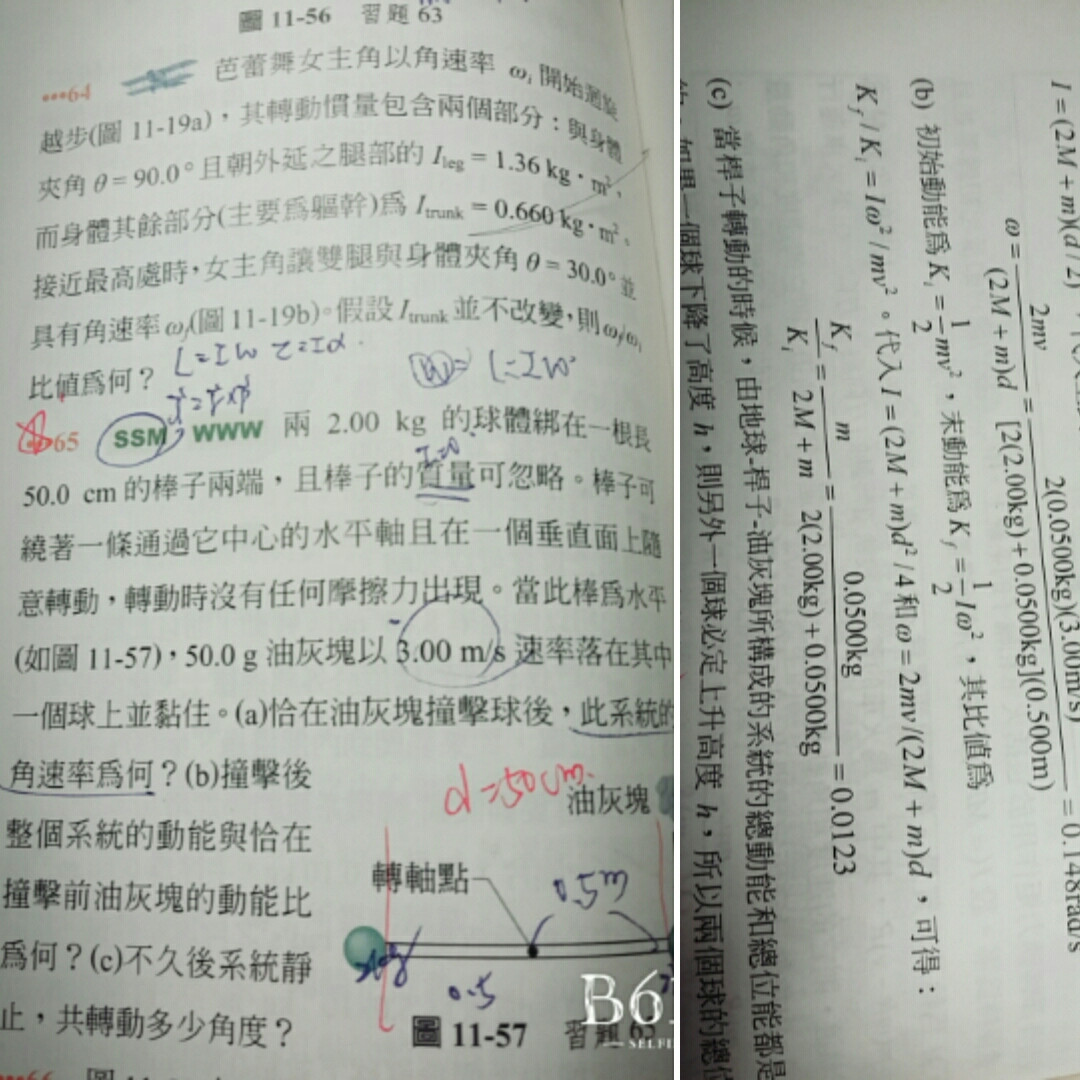 圖 11-56 習題 63
•••64 芭蕾舞女主角以角速率 ωi 開始迴旋
越步(圖 11-19a)，其轉動慣量包含兩個部分：與身體
夾角 θ = 90.0° 且朝外延之腿部的 Ileg = 1.36 kg·m²，
而身體其餘部分(主要為軀幹)為 Itrunk = 0.660 kg·m²。
接近最高處時，女主角讓雙腿與身體夾角 θ = 30.0° 並
具有角速率 ωf(圖 11-19b)。假設 Itrunk 並不改變，則 ωf/ωi
比值為何？
L = Iω τ = Iα
L = Iω
65 SSM WWW 兩 2.00 kg 的球體綁在一根長
I=0
50.0 cm 的棒子兩端，且棒子的質量可忽略。棒子可
繞著一條通過它中心的水平軸且在一個垂直面上隨
意轉動，轉動時沒有任何摩擦力出現。當此棒為水平
(如圖 11-57)，50.0 g 油灰塊以 3.00 m/s 速率落在其中
一個球上並黏住。(a)恰在油灰塊撞擊球後，此系統的
角速率為何？(b)撞擊後
整個系統的動能與恰在
撞擊前油灰塊的動能比
為何？(c)不久後系統靜
止，共轉動多少角度？
d = 50cm
油灰塊
轉軸點
0.5m
0.5
圖 11-57 習題
B6
SELFI
I = (2M + m)(d / 2)
ω = 2mv / (2M + m)d = 2(0.0500kg)(3.00m/s) / [2(2.00kg) + 0.0500kg](0.500m) = 0.148rad/s
(b) 初始動能為 Ki = 1/2 mv²，末動能為 Kf = 1/2 Iω²，其比值為
Kf / Ki = Iω² / mv²。代入 I = (2M + m)d² / 4 和 ω = 2mv / (2M + m)d，可得：
Kf / Ki = m / 2M + m = 0.0500kg / 2(2.00kg) + 0.0500kg = 0.0123
(c) 當桿子轉動的時候，由地球-桿子-油灰塊所構成的系統的總動能和總位能都是
如果一個球下降了高度 h，則另外一個球必定上升高度 h，所以兩個球的總位